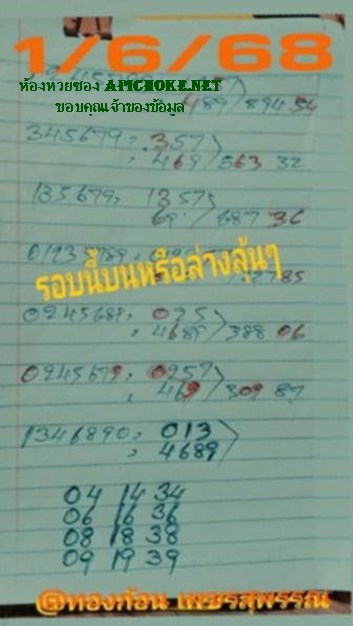 1/6/68
ห้องหวยซอง APICHOKE.NET
ขอบคุณเจ้าของข้อมูล
489/894 54
345679: 357
469/563 32
135679: 1357
69/687 36
รอบนี้บนหรือล่างลุ้นๆ
85
0245689: 025
4689/388 06
0245679: 0257
469/309 87
1346890: 013
4689
04 14 34
06 16 36
08 18 38
09 19 39
@ทองก้อน เพชรสุพรรณ